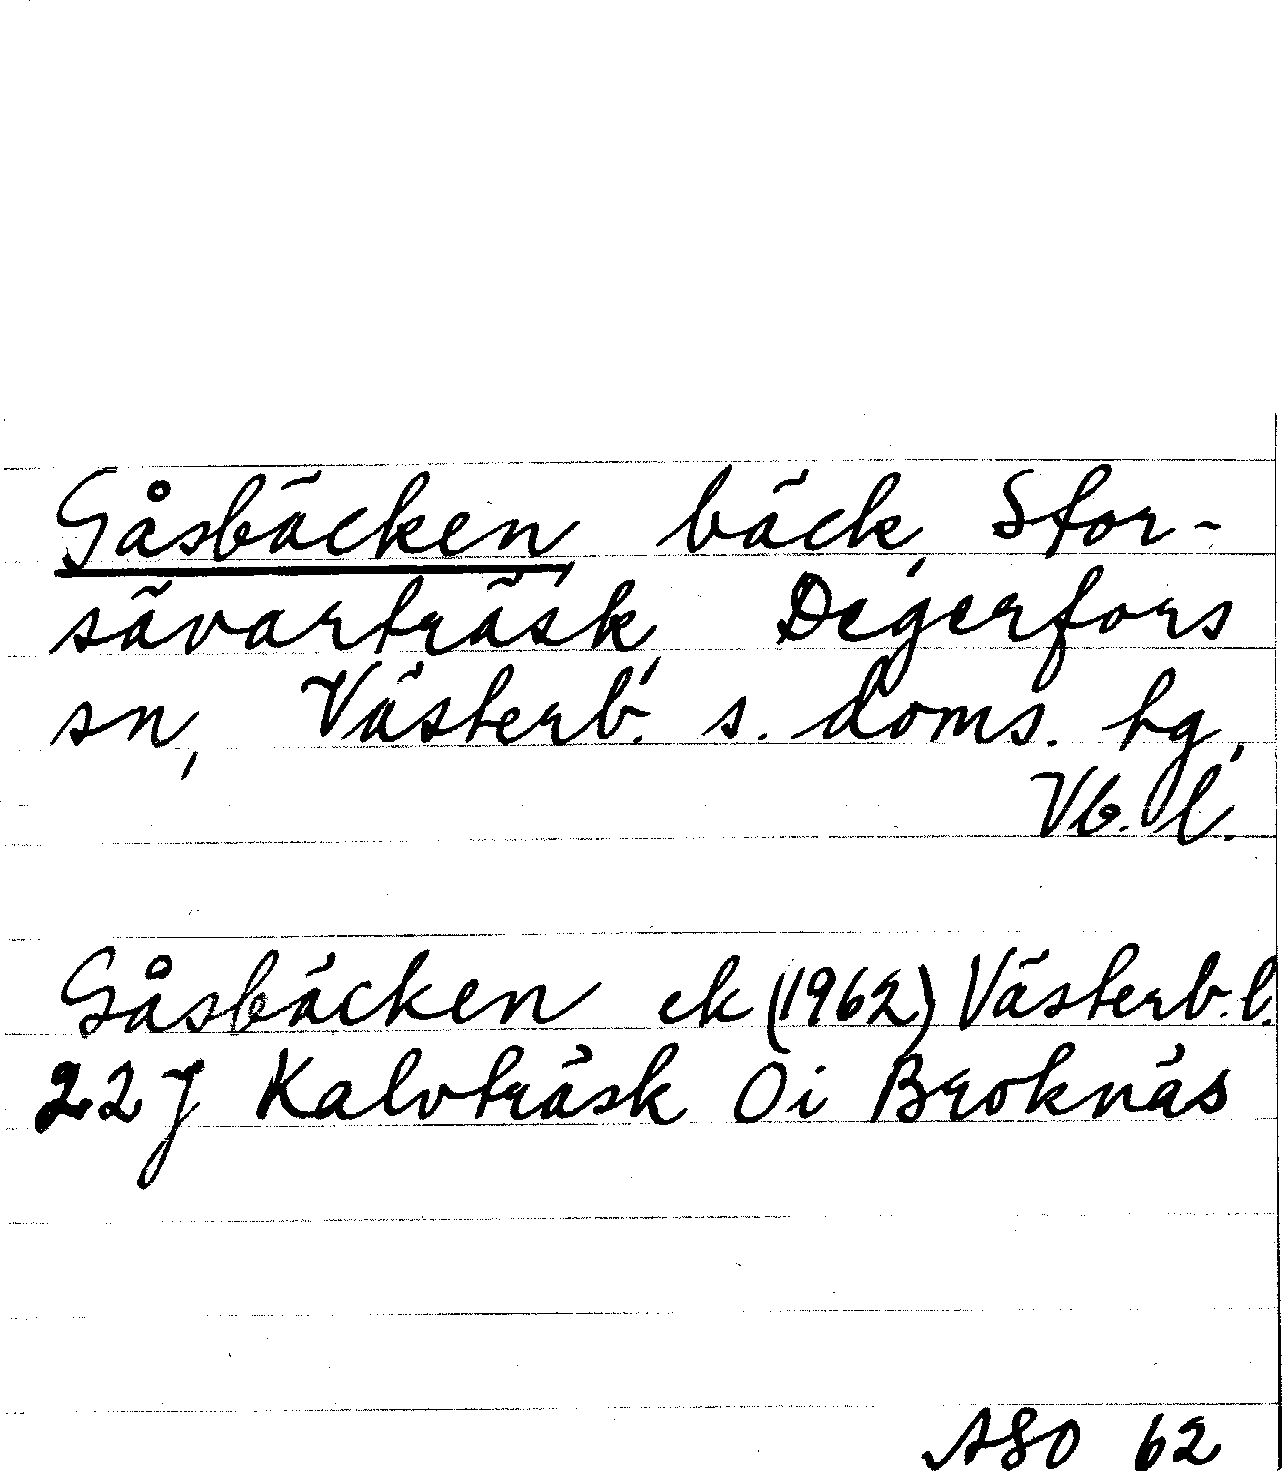 Gåsbäcken, bäck, Stor-
sävarträsk, Degerfors
sn, Västerb. s. doms. tg,
Vb. l.
Gåsbäcken ek (1962) Västerb. l.
22J Kalvträsk Oi Broknäs
ASO 62